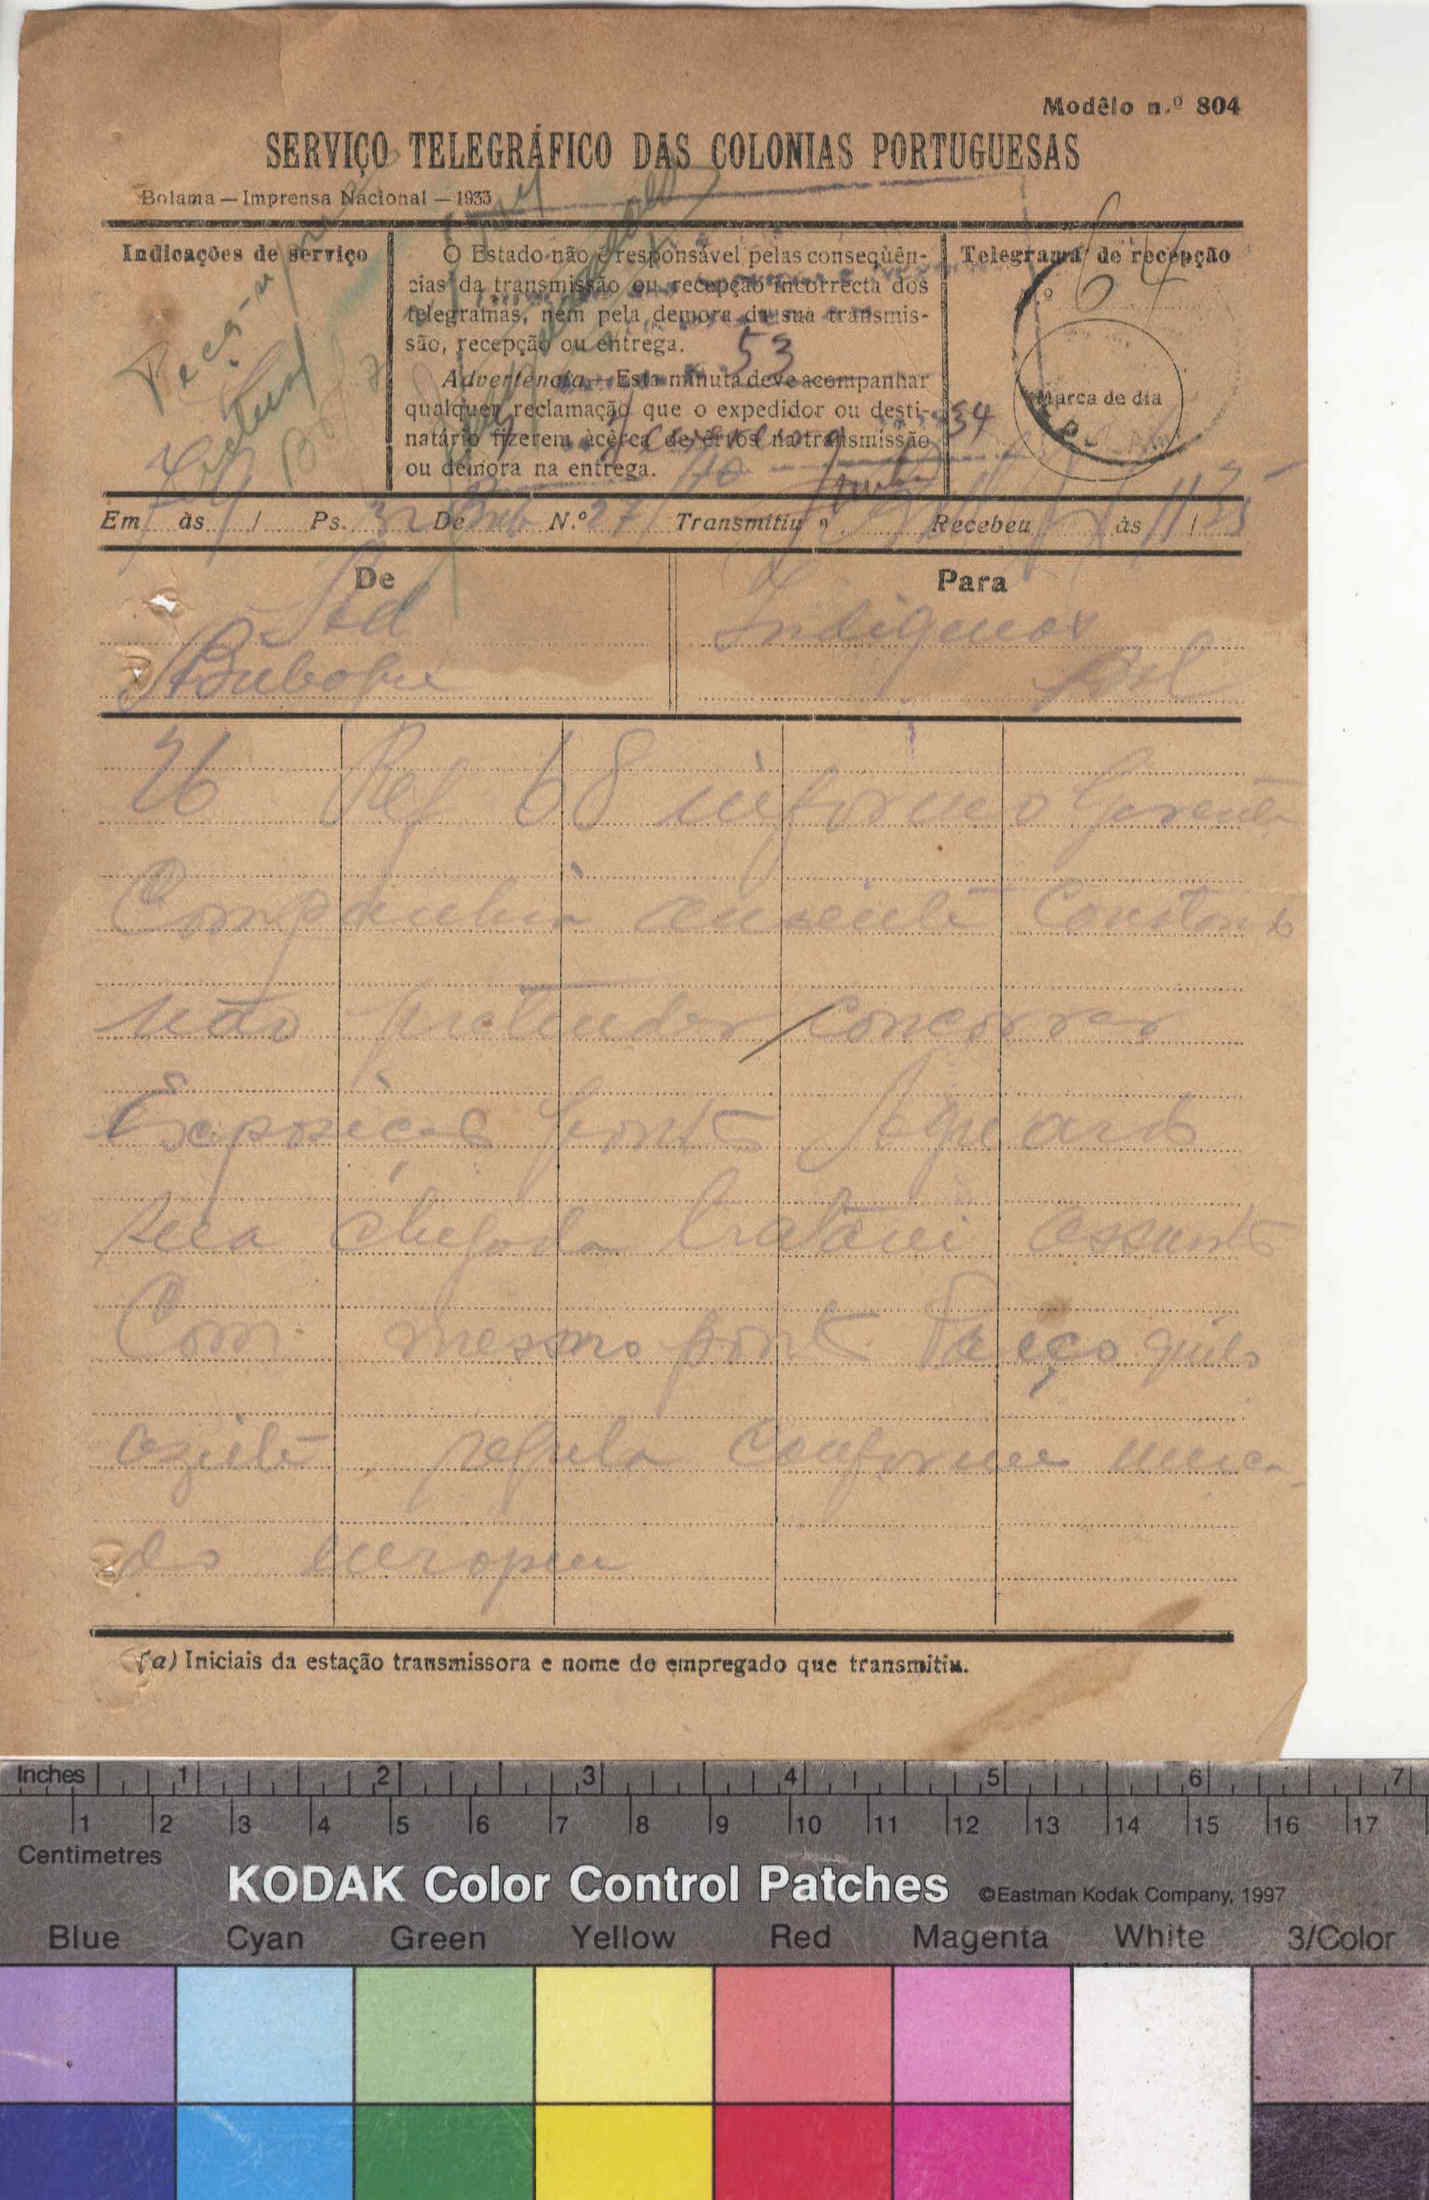 Modêlo n.º 804
SERVIÇO TELEGRÁFICO DAS COLONIAS PORTUGUESAS
Bolama — Imprensa Nacional — 1933
Indicações de serviço
O Estado não é responsável pelas conseqüên-
cias da transmissão ou recepção incorrecta dos
telegramas, nem pela demora da sua transmis-
são, recepção ou entrega.
53
Advertência.—Esta minuta deve acompanhar
qualquer reclamação que o expedidor ou desti-
natário fizerem àcêrca de êrros na transmissão
ou demora na entrega.
54
Telegrama de recepção
n.º 64
Marca de dia
Em às / Ps. 32 De Bub N.º 27 Transmitiu Recebeu às 11 / 25
De
Para
Indigenas
Bubaque
Bol
26 Ref 68 informo Gerente
Companhia ausente Constando
não pretender concorrer
Exposição ponto Aguardo
sua chegada tratarei assunto
Com mesmo ponto Preço quilo
azeite regula conforme merca-
do europeu
(a) Iniciais da estação transmissora e nome do empregado que transmitiu.
Inches 1 2 3 4 5 6 7
1 2 3 4 5 6 7 8 9 10 11 12 13 14 15 16 17
Centimetres
KODAK Color Control Patches ©Eastman Kodak Company, 1997
Blue Cyan Green Yellow Red Magenta White 3/Color